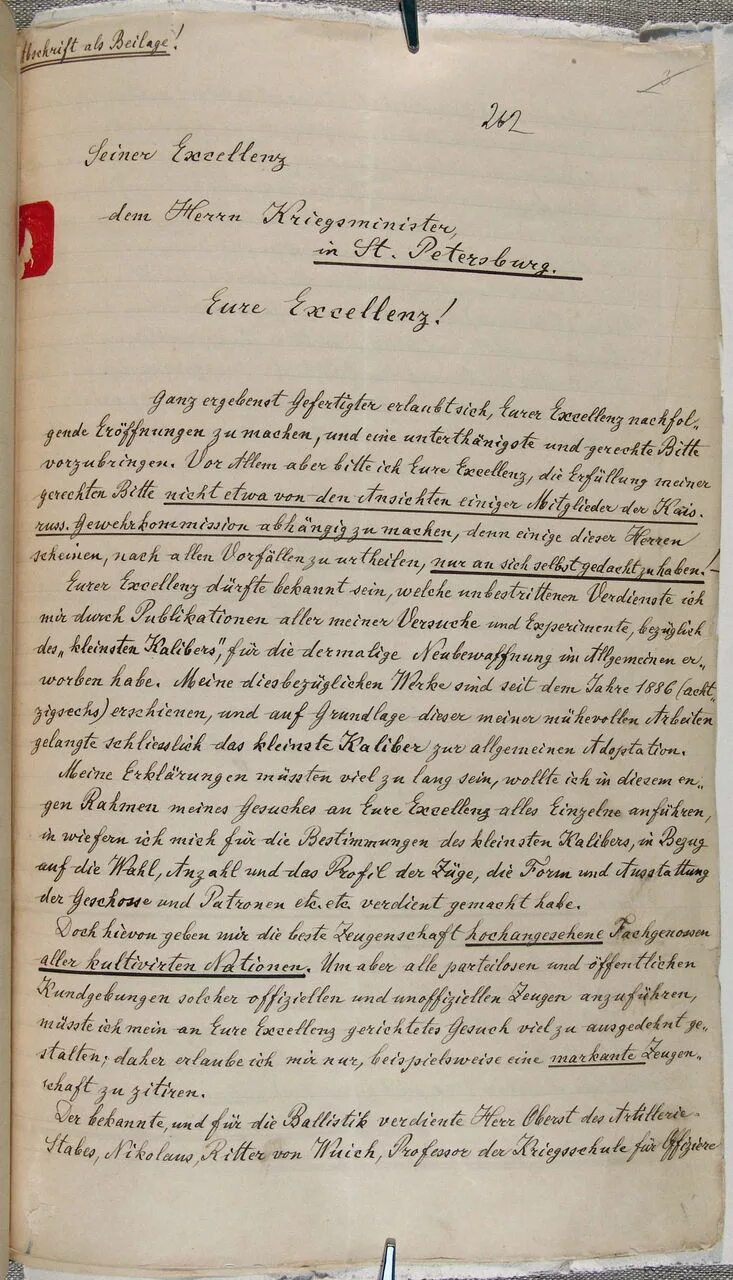 Abschrift als Beilage!
262
Seiner Excellenz
dem Herrn Kriegsminister,
in St. Petersburg.
Eure Excellenz!
Ganz ergebenst Gefertigter erlaubt sich, Eurer Excellenz nachfol„
gende Eröffnungen zu machen, und eine unterthänigste und gerechte Bitte
vorzubringen. Vor Allem aber bitte ich Eure Excellenz, die Erfüllung meiner
gerechten Bitte nicht etwa von den Ansichten einiger Mitglieder der Kais.
russ. Gewehrkommission abhängig zu machen, denn einige dieser Herren
scheinen, nach allen Vorfällen zu urtheilen, nur an sich selbst gedacht zu haben! –
Eurer Excellenz dürfte bekannt sein, welche unbestrittenen Verdienste ich
mir durch Publikationen aller meiner Versuche und Experimente, bezüglich
des „kleinsten Kalibers“, für die dermalige Neubewaffnung im Allgemeinen er„
worben habe. Meine diesbezüglichen Werke sind seit dem Jahre 1886 (acht„
zigsechs) erschienen, und auf Grundlage dieser meiner mühevollen Arbeiten
gelangte schliesslich das kleinste Kaliber zur allgemeinen Adoptation.
Meine Erklärungen müssten viel zu lang sein, wollte ich in diesem en„
gen Rahmen meines Gesuches an Eure Excellenz alles Einzelne anführen,
in wiefern ich mich für die Bestimmungen des kleinsten Kalibers, in Bezug
auf die Wahl, Anzahl und das Profil der Züge, die Form und Ausstattung
der Geschosse und Patronen etc. etc. verdient gemacht habe.
Doch hievon geben mir die beste Zeugenschaft hochangesehene Fachgenossen
aller kultivirten Nationen. Um aber alle parteilosen und öffentlichen
Kundgebungen solcher offiziellen und unoffiziellen Zeugen anzuführen,
müsste ich mein an Eure Excellenz gerichtetes Gesuch viel zu ausgedehnt ge„
stalten; daher erlaube ich mir nur, beispielsweise eine markante Zeugen„
schaft zu zitiren.
Der bekannte, und für die Ballistik verdiente Herr Oberst des Artillerie-
Stabes, Nikolaus, Ritter von Wuich, Professor der Kriegsschule für Offiziere